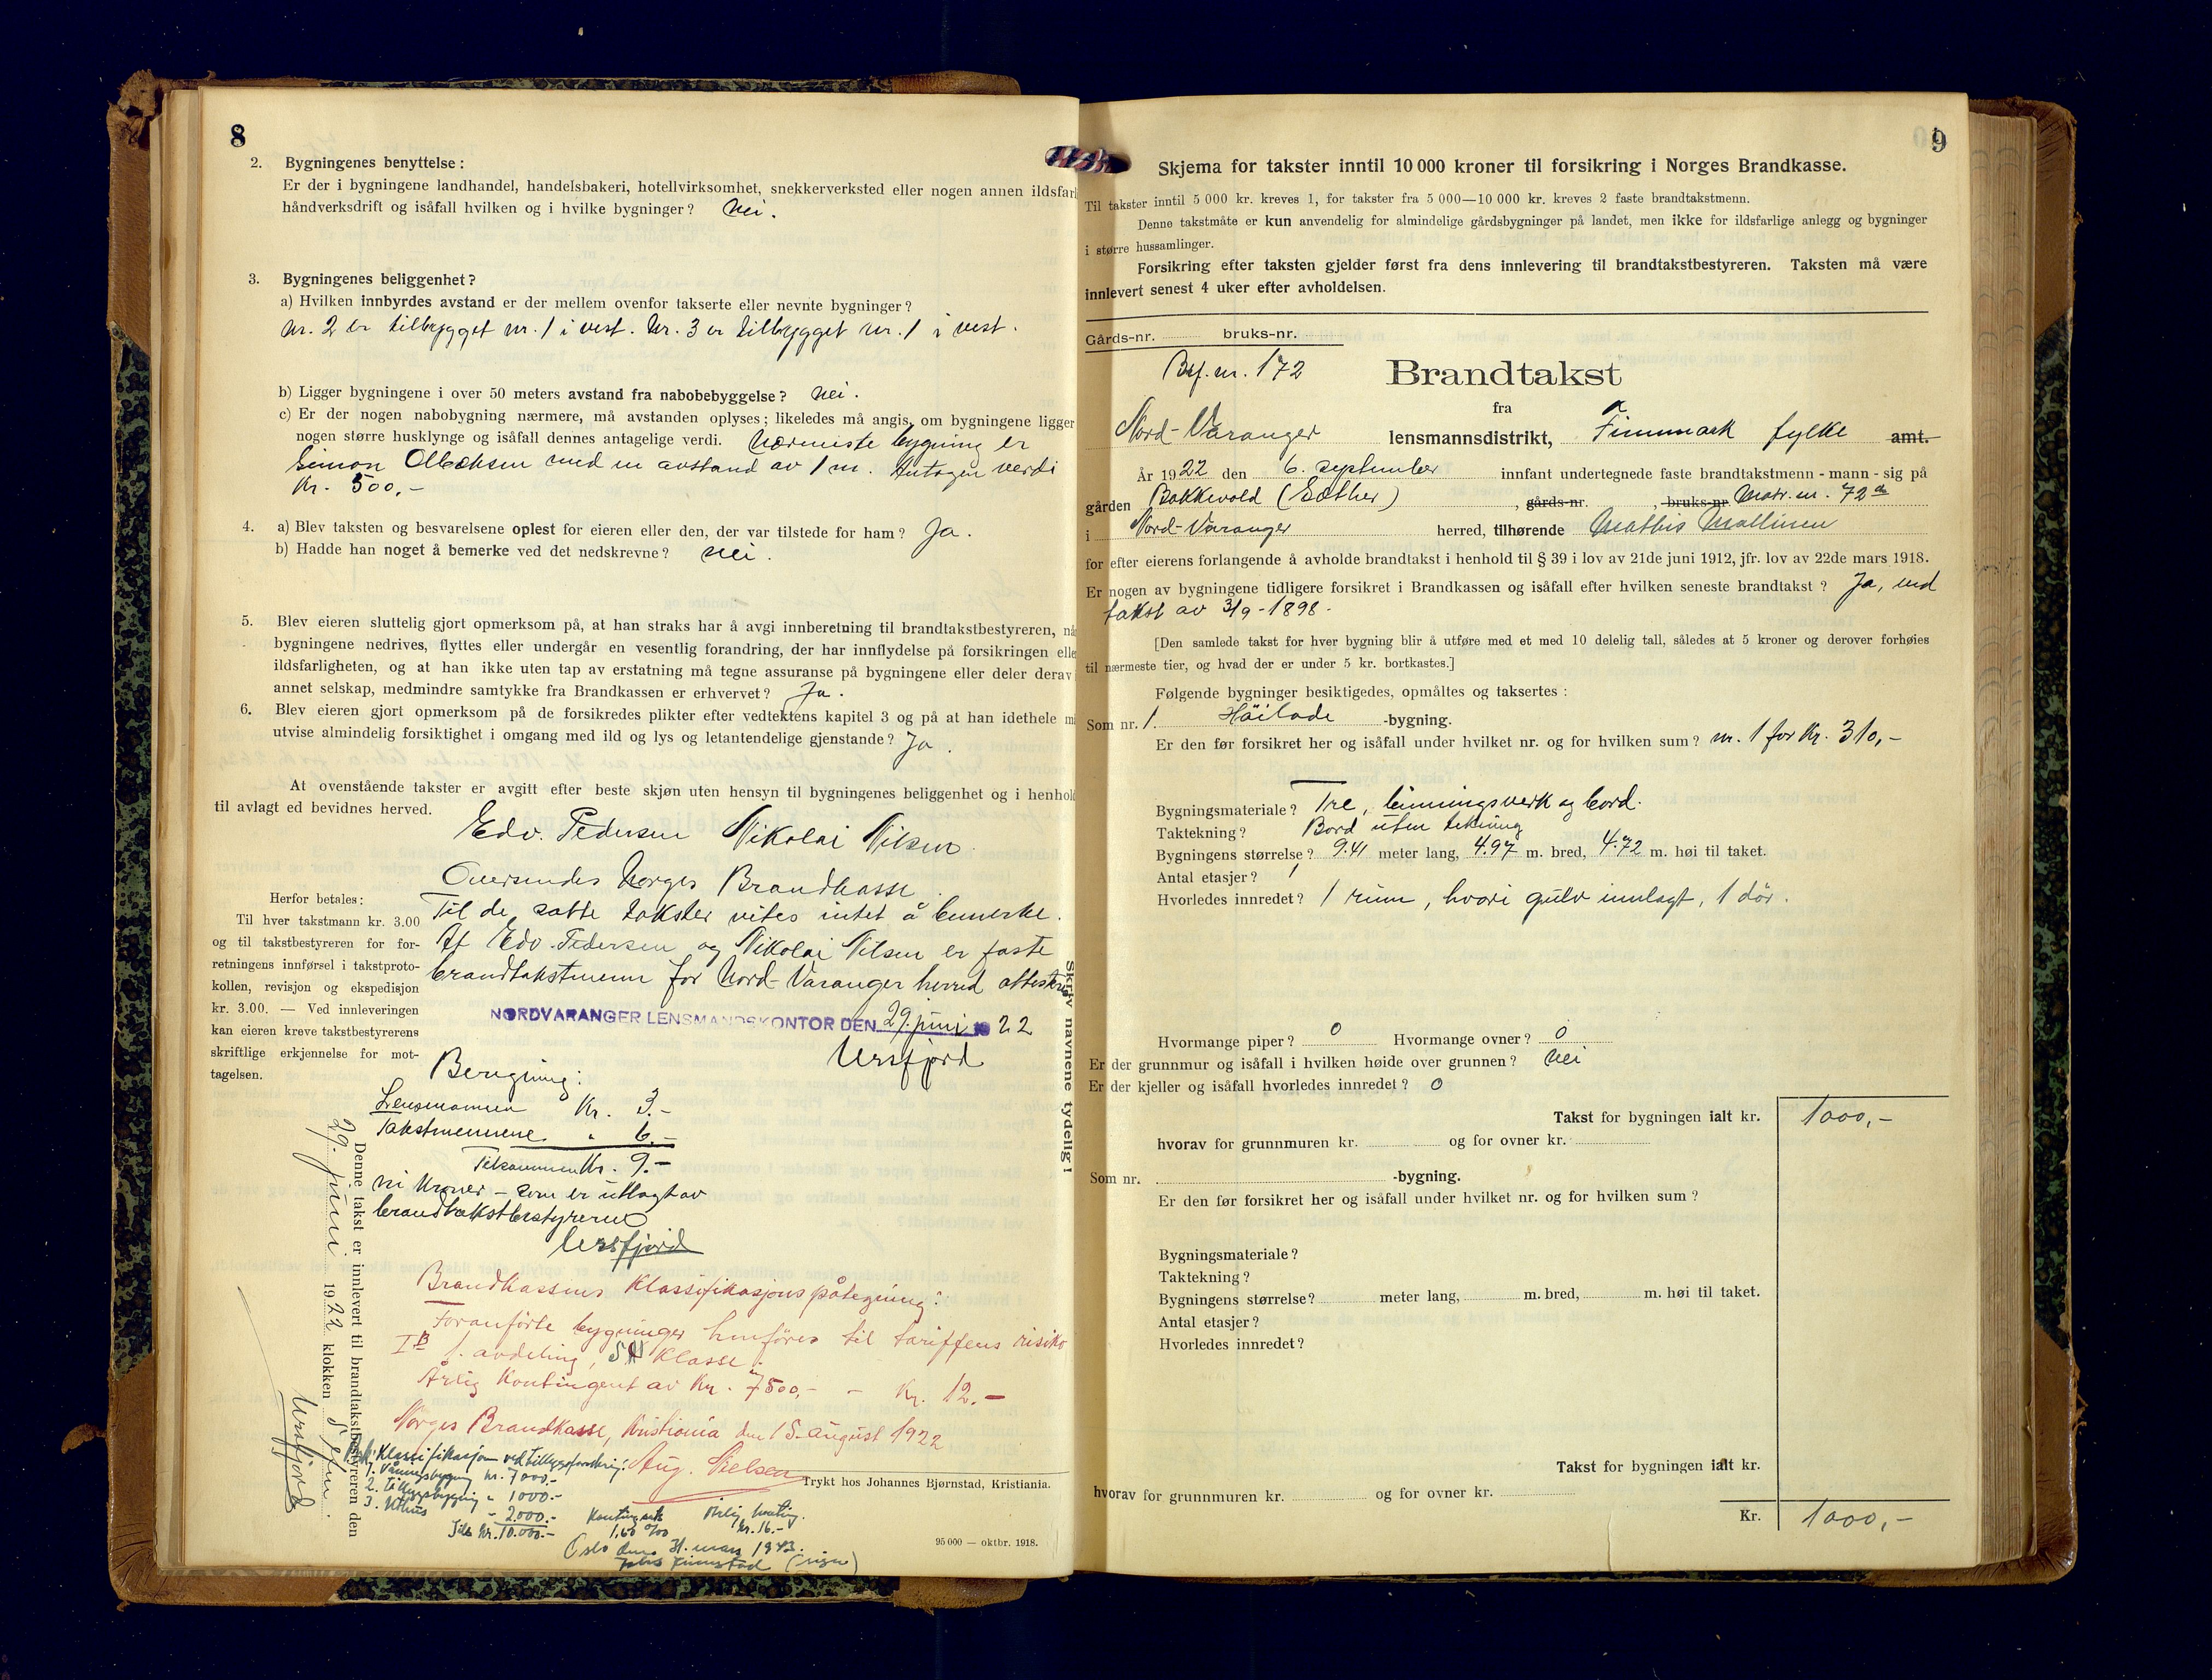 8
2. Bygningenes benyttelse :
Er der i bygningene landhandel, handelsbakeri, hotellvirksomhet, snekkerverksted eller nogen annen ildsfarl
håndverksdrift og isåfall hvilken og i hvilke bygninger? Nei.
3. Bygningenes beliggenhet?
a) Hvilken innbyrdes avstand er der mellem ovenfor takserte eller nevnte bygninger?
Nr. 2 er tilbygget nr. 1 i vest. Nr. 3 er tilbygget nr. 1 i vest.
b) Ligger bygningene i over 50 meters avstand fra nabobebyggelse? Nei.
c) Er der nogen nabobygning nærmere, må avstanden oplyses; likeledes må angis, om bygningene ligger
nogen større husklynge og isåfall dennes antagelige verdi. Nærmeste bygning er
Simon med en avstand av 1 m. Antagen verdi
Kr. 500,-
4. a) Blev taksten og besvarelsene oplest for eieren eller den, der var tilstede for ham? Ja.
b) Hadde han noget å bemerke ved det nedskrevne? Nei.
5. Blev eieren sluttelig gjort opmerksom på, at han straks har å avgi innberetning til brandtakstbestyreren, når
bygningene nedrives, flyttes eller undergår en vesentlig forandring, der har innflydelse på forsikringen elle
ildsfarligheten, og at han ikke uten tap av erstatning må tegne assuranse på bygningene eller deler derav i
annet selskap, medmindre samtykke fra Brandkassen er erhvervet? Ja.
6. Blev eieren gjort opmerksom på de forsikredes plikter efter vedtektens kapitel 3 og på at han idethele m
utvise almindelig forsiktighet i omgang med ild og lys og letantendelige gjenstande? Ja.
At ovenstående takster er avgitt efter beste skjøn uten hensyn til bygningenes beliggenhet og i henhold
til avlagt ed bevidnes herved.
Edv. Pedersen Nikolai Nilsen
Herfor betales:
Til hver takstmann kr. 3.00
og til takstbestyreren for for-
retningens innførsel i takstproto-
kollen, revisjon og ekspedisjon
kr. 3.00. — Ved innleveringen
kan eieren kreve takstbestyrerens
skriftlige erkjennelse for mot-
tagelsen.
Oversendes Norges Brandkasse.
Til de satte takster vites intet å bemerke.
At Edv. Pedersen og Nikolai Nilsen er faste
brandtakstmenn for Nord-Varanger herred attesteres
NORDVARANGER LENSMANDSKONTOR DEN 29. juni 1922
Ursfjord
Skriv navnene tydelig!
Beregning:
Lensmannen Kr. 3.-
Takstmennene " 6.-
Tilsammen Kr. 9.-
ni kroner - som er utlagt av
brandtakstbestyreren
Ursfjord
Denne takst er innlevert til brandtakstbestyreren den
29. juni 1922 klokken 5 efm.
Ursfjord
Brandkassens klassifikasjonspåtegning:
Foranførte bygninger henføres til tariffens risiko
I B 1. avdeling, 5 klasse.
Årlig kontingent av Kr. 7500,- - Kr. 12.-
Norges Brandkasse, Kristiania den 15. august 1922
Aug. Nielsen
Klassifikasjon ved tilleggsforsikring:
1. Våningsbygning kr. 7000.-
2. Tilbyggsbygning " 1000.-
3. Uthus - 2.000.-
Tils. Kr. 10.000.-
1,60 ‰ Kr. 16.-
Oslo den mars 1943.
(sign)
Trykt hos Johannes Bjørnstad, Kristiania.
95 000 — oktbr. 1918.
9
Skjema for takster inntil 10 000 kroner til forsikring i Norges Brandkasse.
Til takster inntil 5 000 kr. kreves 1, for takster fra 5 000—10 000 kr. kreves 2 faste brandtakstmenn.
Denne takstmåte er kun anvendelig for almindelige gårdsbygninger på landet, men ikke for ildsfarlige anlegg og bygninger
i større hussamlinger.
Forsikring efter taksten gjelder først fra dens innlevering til brandtakstbestyreren. Taksten må være
innlevert senest 4 uker efter avholdelsen.
Gårds-nr. bruks-nr.
Bsf. nr. 172
Brandtakst
fra
Nord-Varanger lensmannsdistrikt, Finnmark fylke amt.
År 1922 den 6. september innfant undertegnede faste brandtakstmenn - mann - sig på
gården Bakkevold (Sæther), gårds-nr. , bruks-nr Matr. nr. 72
i Nord-Varanger herred, tilhørende Mathis Mallinen
for efter eierens forlangende å avholde brandtakst i henhold til § 39 i lov av 21de juni 1912, jfr. lov av 22de mars 1918.
Er nogen av bygningene tidligere forsikret i Brandkassen og isåfall efter hvilken seneste brandtakst ? Ja, ved
takst av 3/9-1898.
[Den samlede takst for hver bygning blir å utføre med et med 10 delelig tall, således at 5 kroner og derover forhøies
til nærmeste tier, og hvad der er under 5 kr. bortkastes.]
Følgende bygninger besiktigedes, opmåltes og taksertes :
Som nr. 1. Höilade -bygning.
Er den før forsikret her og isåfall under hvilket nr. og for hvilken sum? nr. 1 for Kr. 310,-
Bygningsmateriale? Tre, binningsverk og bord.
Taktekning? Bord uten tekning
Bygningens størrelse? 9.41 meter lang, 4.97 m. bred, 4.72 m. høi til taket.
Antal etasjer? 1
Hvorledes innredet? 1 rum, hvori gulv innlagt, 1 dör.
Hvormange piper? 0 Hvormange ovner? 0
Er der grunnmur og isåfall i hvilken høide over grunnen? Nei
Er der kjeller og isåfall hvorledes innredet? 0
Takst for bygningen ialt kr. 1000,-
hvorav for grunnmuren kr. og for ovner kr.
Som nr. -bygning.
Er den før forsikret her og isåfall under hvilket nr. og for hvilken sum ?
Bygningsmateriale?
Taktekning?
Bygningens størrelse? meter lang, m. bred, m. høi til taket.
Antal etasjer?
Hvorledes innredet?
Takst for bygningen ialt kr.
hvorav for grunnmuren kr. og for ovner kr.
Kr. 1000,-